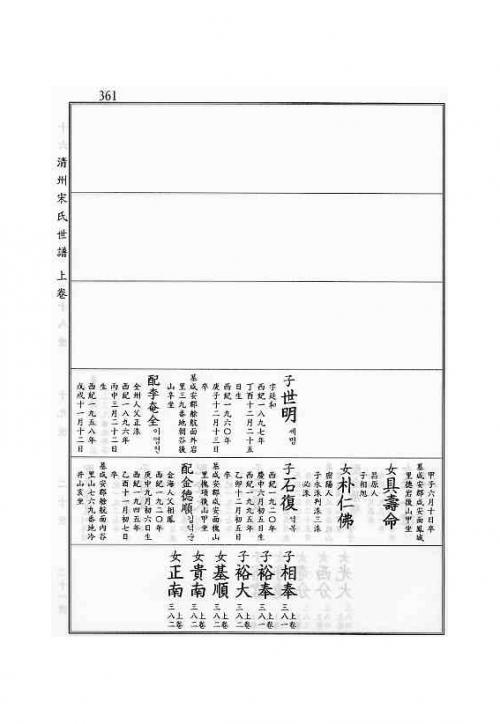 361
清州宋氏世譜 上卷
子世明 세명
字廷和
西紀一八九七年
丁酉十二月二十五
日生
西紀一九六〇年
庚子十二月十三日
卒
墓咸安郡艅航面外岩
里三九番地朝谷後
山辛坐
配李奄全 이엄전
全州人父正洙
西紀一八九六年
丙申三月二十二日
生
西紀一九五八年
戊戌十一月十二日
甲子六月十日卒
墓咸安郡咸安面鳳城
里德岩後山甲坐
女具壽命
昌原人
子相旭
女朴仁佛
密陽人
子永洙判洙三洙
必洙
子石復 석복
西紀一九二〇年
庚申六月初五日生
西紀一九七五年
乙卯十二月初五日
卒
墓咸安郡咸安面槐山
里槐項後山甲坐
配金德順 김덕순
金海人父相鳳
西紀一九二〇年
庚申九月初六日生
西紀一九四五年
乙酉十一月初七日
卒
墓咸安郡艅航面內谷
里山七六九番地冷
井山亥坐
子相奉 上卷 三八一
子裕奉 上卷 三八一
子裕大 上卷 三八二
女基順 上卷 三八二
女貴南 上卷 三八二
女正南 上卷 三八二